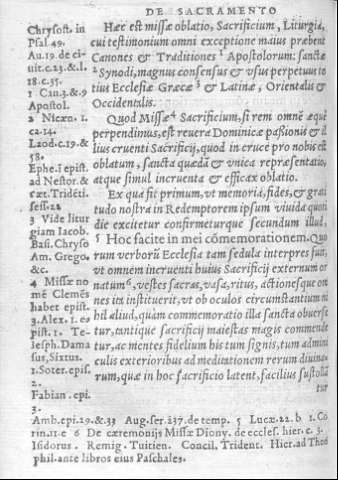 DE SACRAMENTO
Chrysost. in
Psal. 49.
Au. 19. de ci-
uit. c. 23. & l.
18. c. 35.
1 Can. 3. & 9
Apostol.
2 Nicæn. 1.
ca. 14.
Laod. c. 19. &
58.
Ephe. ī epist.
ad Nestor. &
cæt. Tridēti.
sess. 22
3 Vide litur
giam Iacob.
Basi. Chryso
Am. Grego.
&c.
4 Missæ no
mē Clemēs
habet epist.
3. Alex. 1. e-
pist. 1. Te-
lesph. Dama
sus, Sixtus.
1. Soter. epis.
2.
Fabian. epi.
3.
Hæc est missæ oblatio, Sacrificium, Liturgia,
cui testimonium omni exceptione maius præbent
Canones & Traditiones 1 Apostolorum: sanctæ
2 Synodi, magnus consensus & vsus perpetuus to
tius Ecclesiæ Græcæ 3 & Latinæ, Orientalis &
Occidentalis.
Quod Missæ 4 Sacrificium, si rem omnē æquè
perpendimus, est reuera Dominicæ passionis & il
lius cruenti Sacrificij, quod in cruce pro nobis est
oblatum, sancta quædā & viuca repræsentatio,
atque simul incruenta & efficax oblatio.
Ex qua fit primum, vt memoria, fides, & grati
tudo nostra in Redemptorem ipsum viuida quoti
die excitetur confirmeturque secundum illud,
5 Hoc facite in mei cōmemorationem. Quo
rum verborū Ecclesia tam sedula interpres fuit,
vt omnem incruenti huius Sacrificij externum or
natum 6, vestes sacras, vasa, ritus, actionesque om
nes ita instituerit, vt ob oculos circumstantium ni
hil aliud, quàm commemoratio illa sancta obuerse
tur, tantique sacrificij maiestas magis commende
tur, ac mentes fidelium his tum signis, tum admini
culis exterioribus ad meditationem rerum diuina-
rum, quæ in hoc sacrificio latent, facilius sustollā
tur
Amb. epi. 29. & 33 Aug. ser. 237. de temp. 5 Lucæ. 22. b 1. Co
rin. 11. e 6 De cæremonijs Missæ Diony. de eccles. hier. c. 3.
Isidorus. Remig. Tuitien. Concil. Trident. Hier. ad Theo
phil. ante libros eius Paschales.